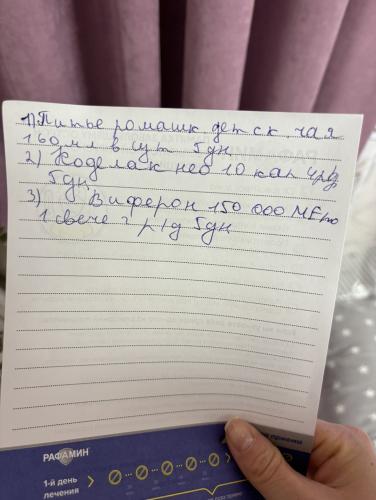 1) Питье ромашк. детск. чая
160 мл в сут 5дн
2) Коделак нео 10 кап 4р/д
5дн
3) Виферон 150 000 МЕ по
1 свече 2 р/д 5дн
РАФАМИН
1-й день
лечения